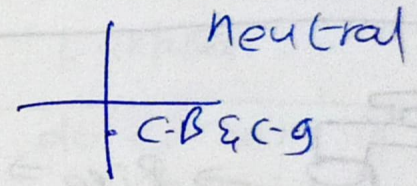 neutral
C-B & C-g